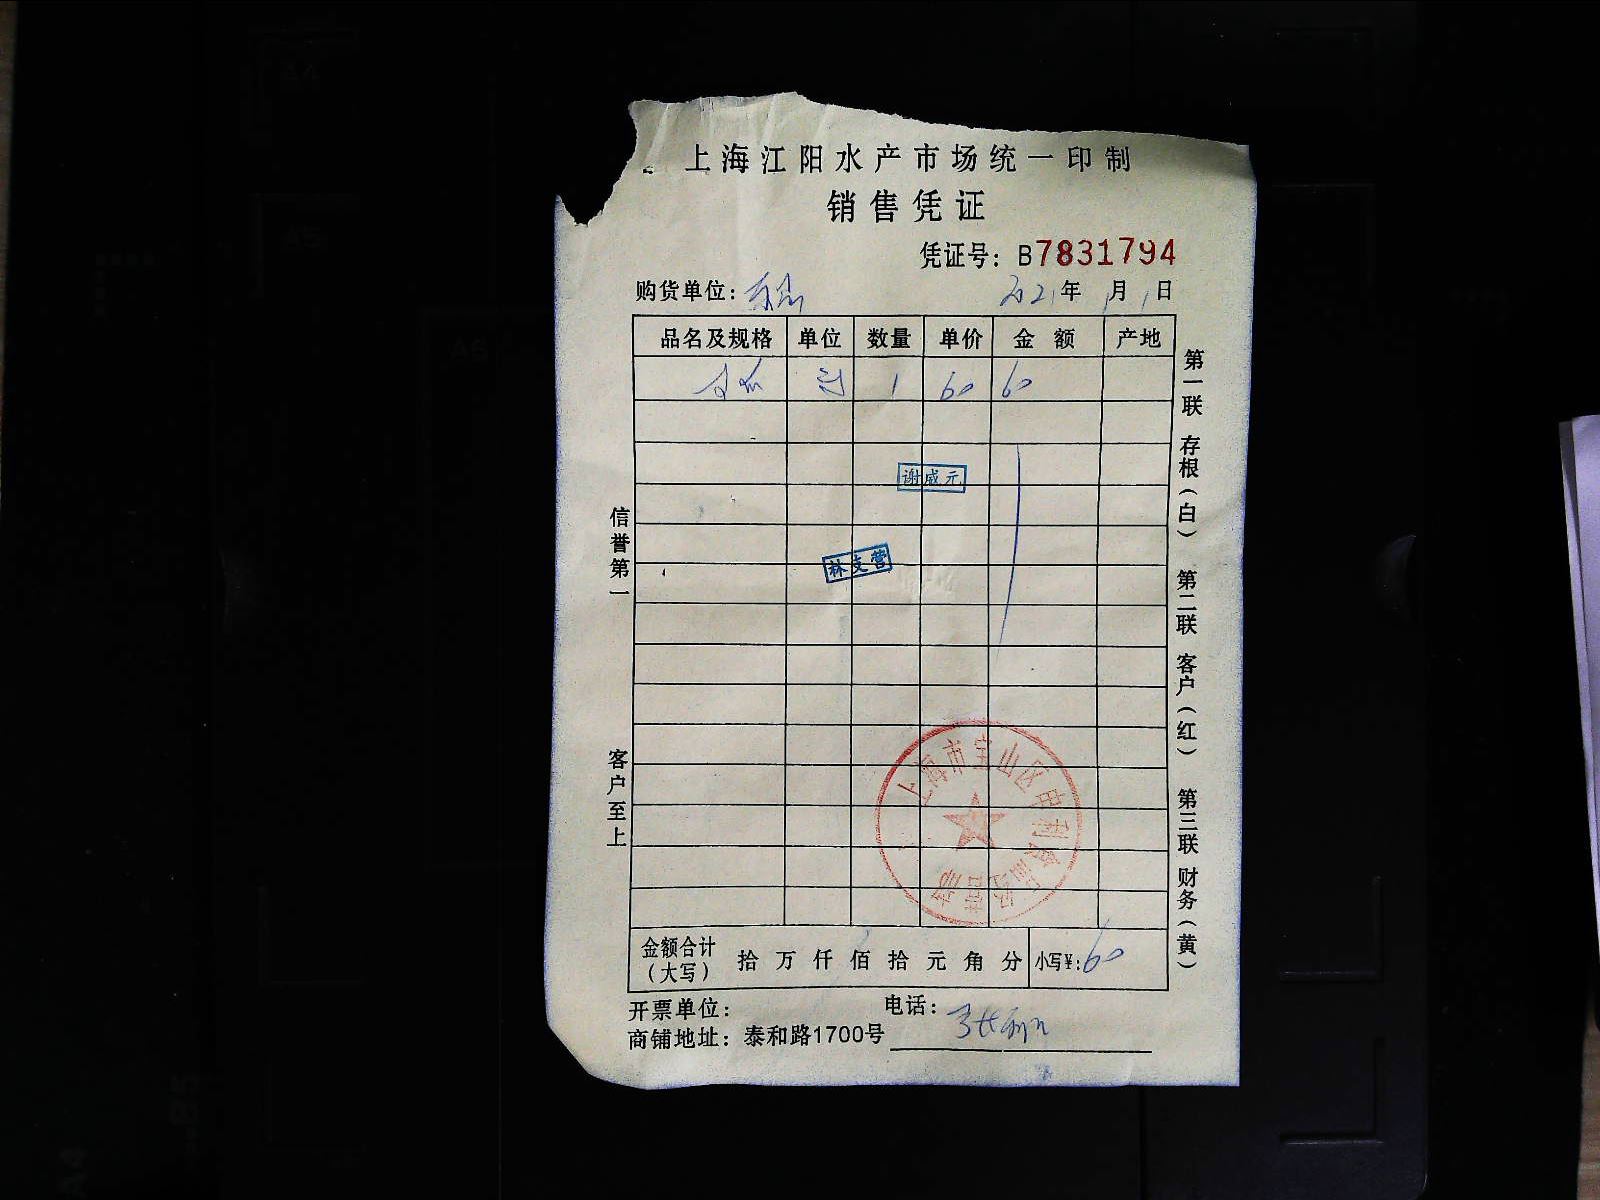 上海江阳水产市场统一印制
销售凭证
凭证号：B7831794
购货单位： 2021年1月1日
品名及规格 单位 数量 单价 金额 产地
1 60 60
谢成元
林支营
信誉第一
客户至上
第一联 存根（白） 第二联 客户（红） 第三联 财务（黄）
上海市宝山区申利食品经营部
金额合计（大写） 拾 万 仟 佰 拾 元 角 分 小写¥:60
开票单位： 电话：
商铺地址：泰和路1700号